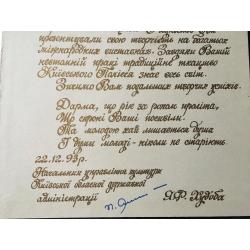 презентували свою творчість на багатьох
міжнародних виставках. Завдяки Вашій
невтомній праці традиційне ткацтво
Київського Полісся знає весь світ.
Зичимо Вам подальших творчих успіхів.
Дарма, що рік за роком проліта,
Що скроні Ваші посивіли.
Та молодою хай лишається душа
І думи молоді - ніколи не старіють.
22.12.93р.
Начальник управління культури
Київської обласної державної
адміністрації
Я.Р. Худоба